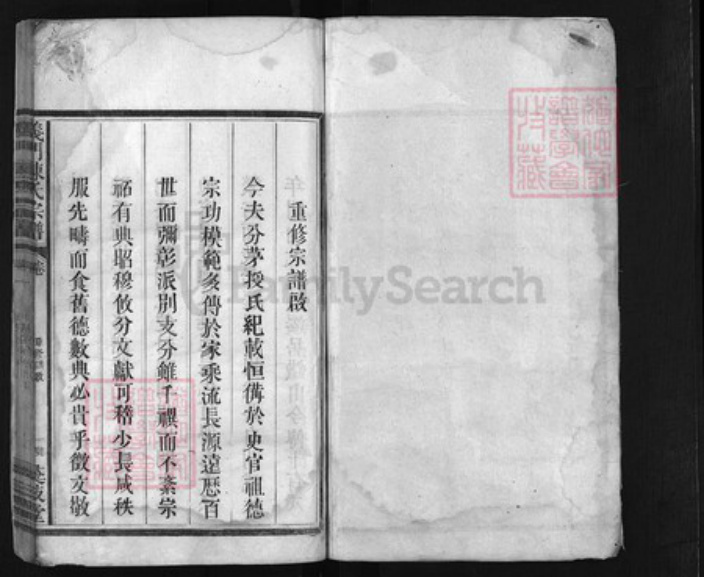 重修宗譜啟
今夫分茅授氏紀載恒偹於史官祖德
宗功模範多傳於家乘流長源遠歷百
世而彌彰派別支分雖千禩而不紊宗
祏有典昭穆攸分文獻可稽少長咸秩
服先疇而食舊德數典必貴乎徵文敬
義門陳氏宗譜
FamilySearch